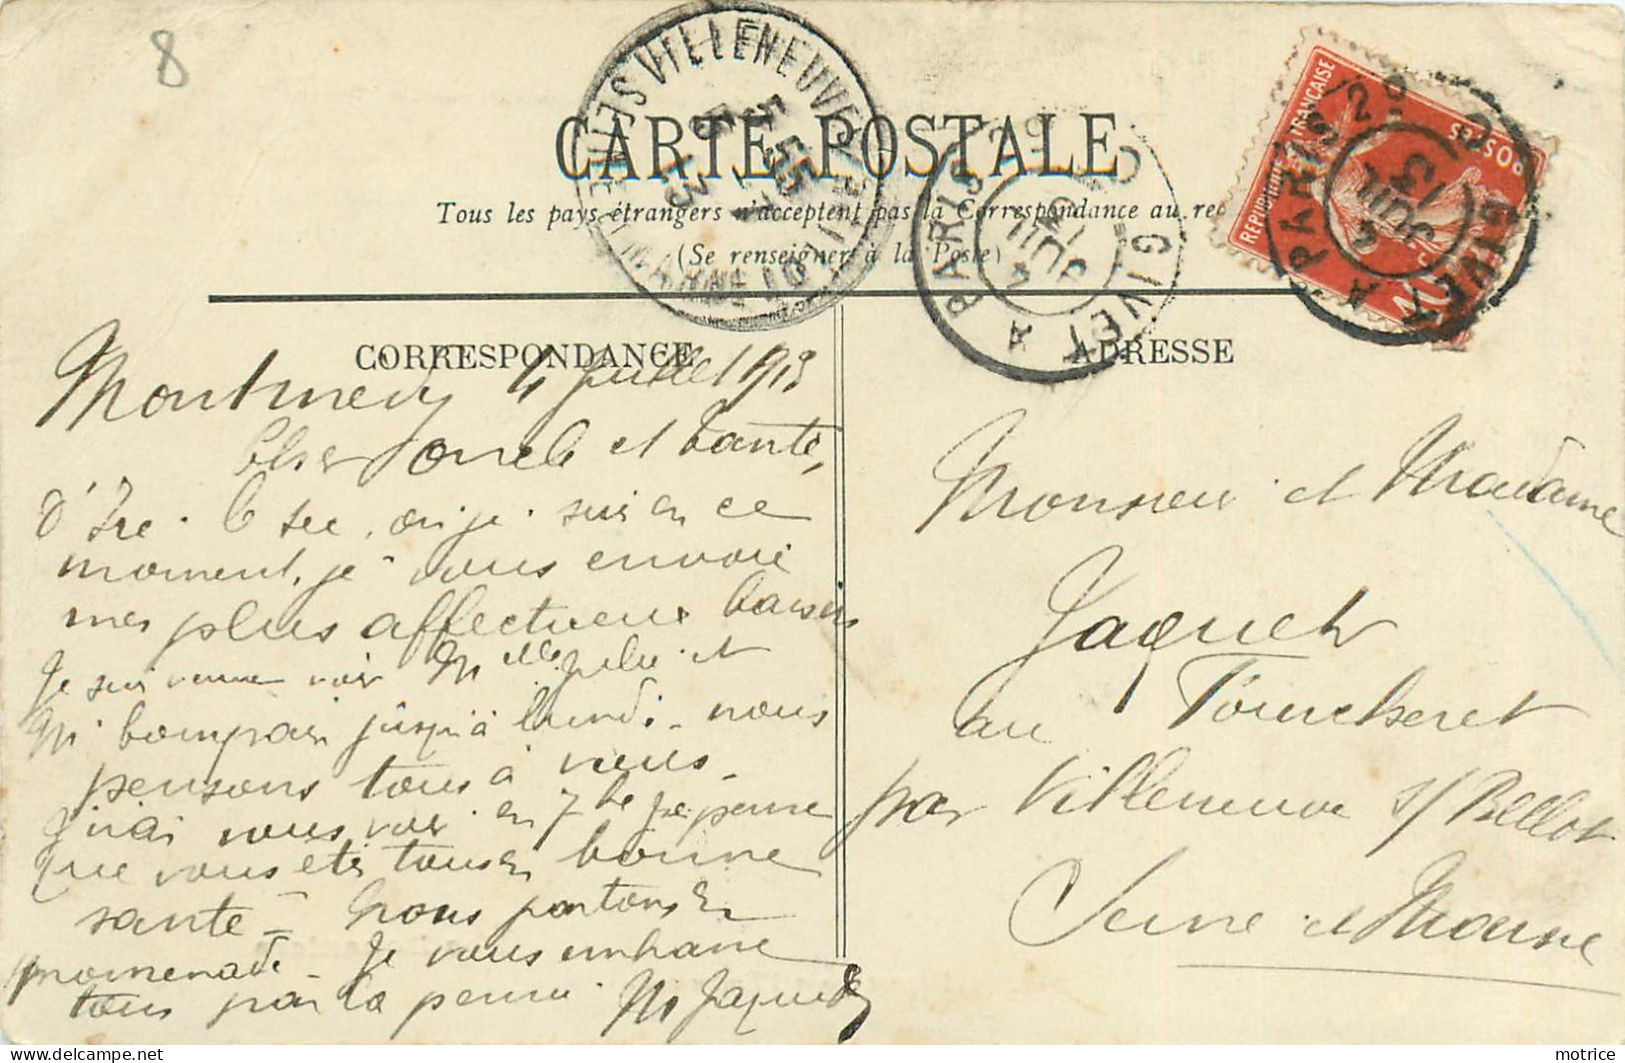 8
CARTE POSTALE
Tous les pays étrangers n'acceptent pas la Correspondance au rec
(Se renseigner à la Poste)
VILLENEUVE
SEINE ET MARNE
5 55
5 - 7
13
PARIS A GIVET
4 JUIL 13
REPUBLIQUE FRANÇAISE
POSTES
PARIS A GIVET
4 JUIL 13
CORRESPONDANCE
Montmédy 4 Juillet 1913
Cher oncle et tante,
d' où je suis en ce
moment, je vous envoie
mes plus affectueux baisers
Je suis venue voir Melle Julie et
M jusqu'à lundi - nous
pensons tous à vous -
J'irai vous voir en 7bre je pense
que vous êtes tous en bonne
santé = Nous partons en
promenade - Je vous embrasse
tous par la pensée. M Jaquet
ADRESSE
Monsieur et Madame
Jaquet
au Fourcheret
par Villeneuve s/ Bellot
Seine et Marne
motrice
delcampe.net